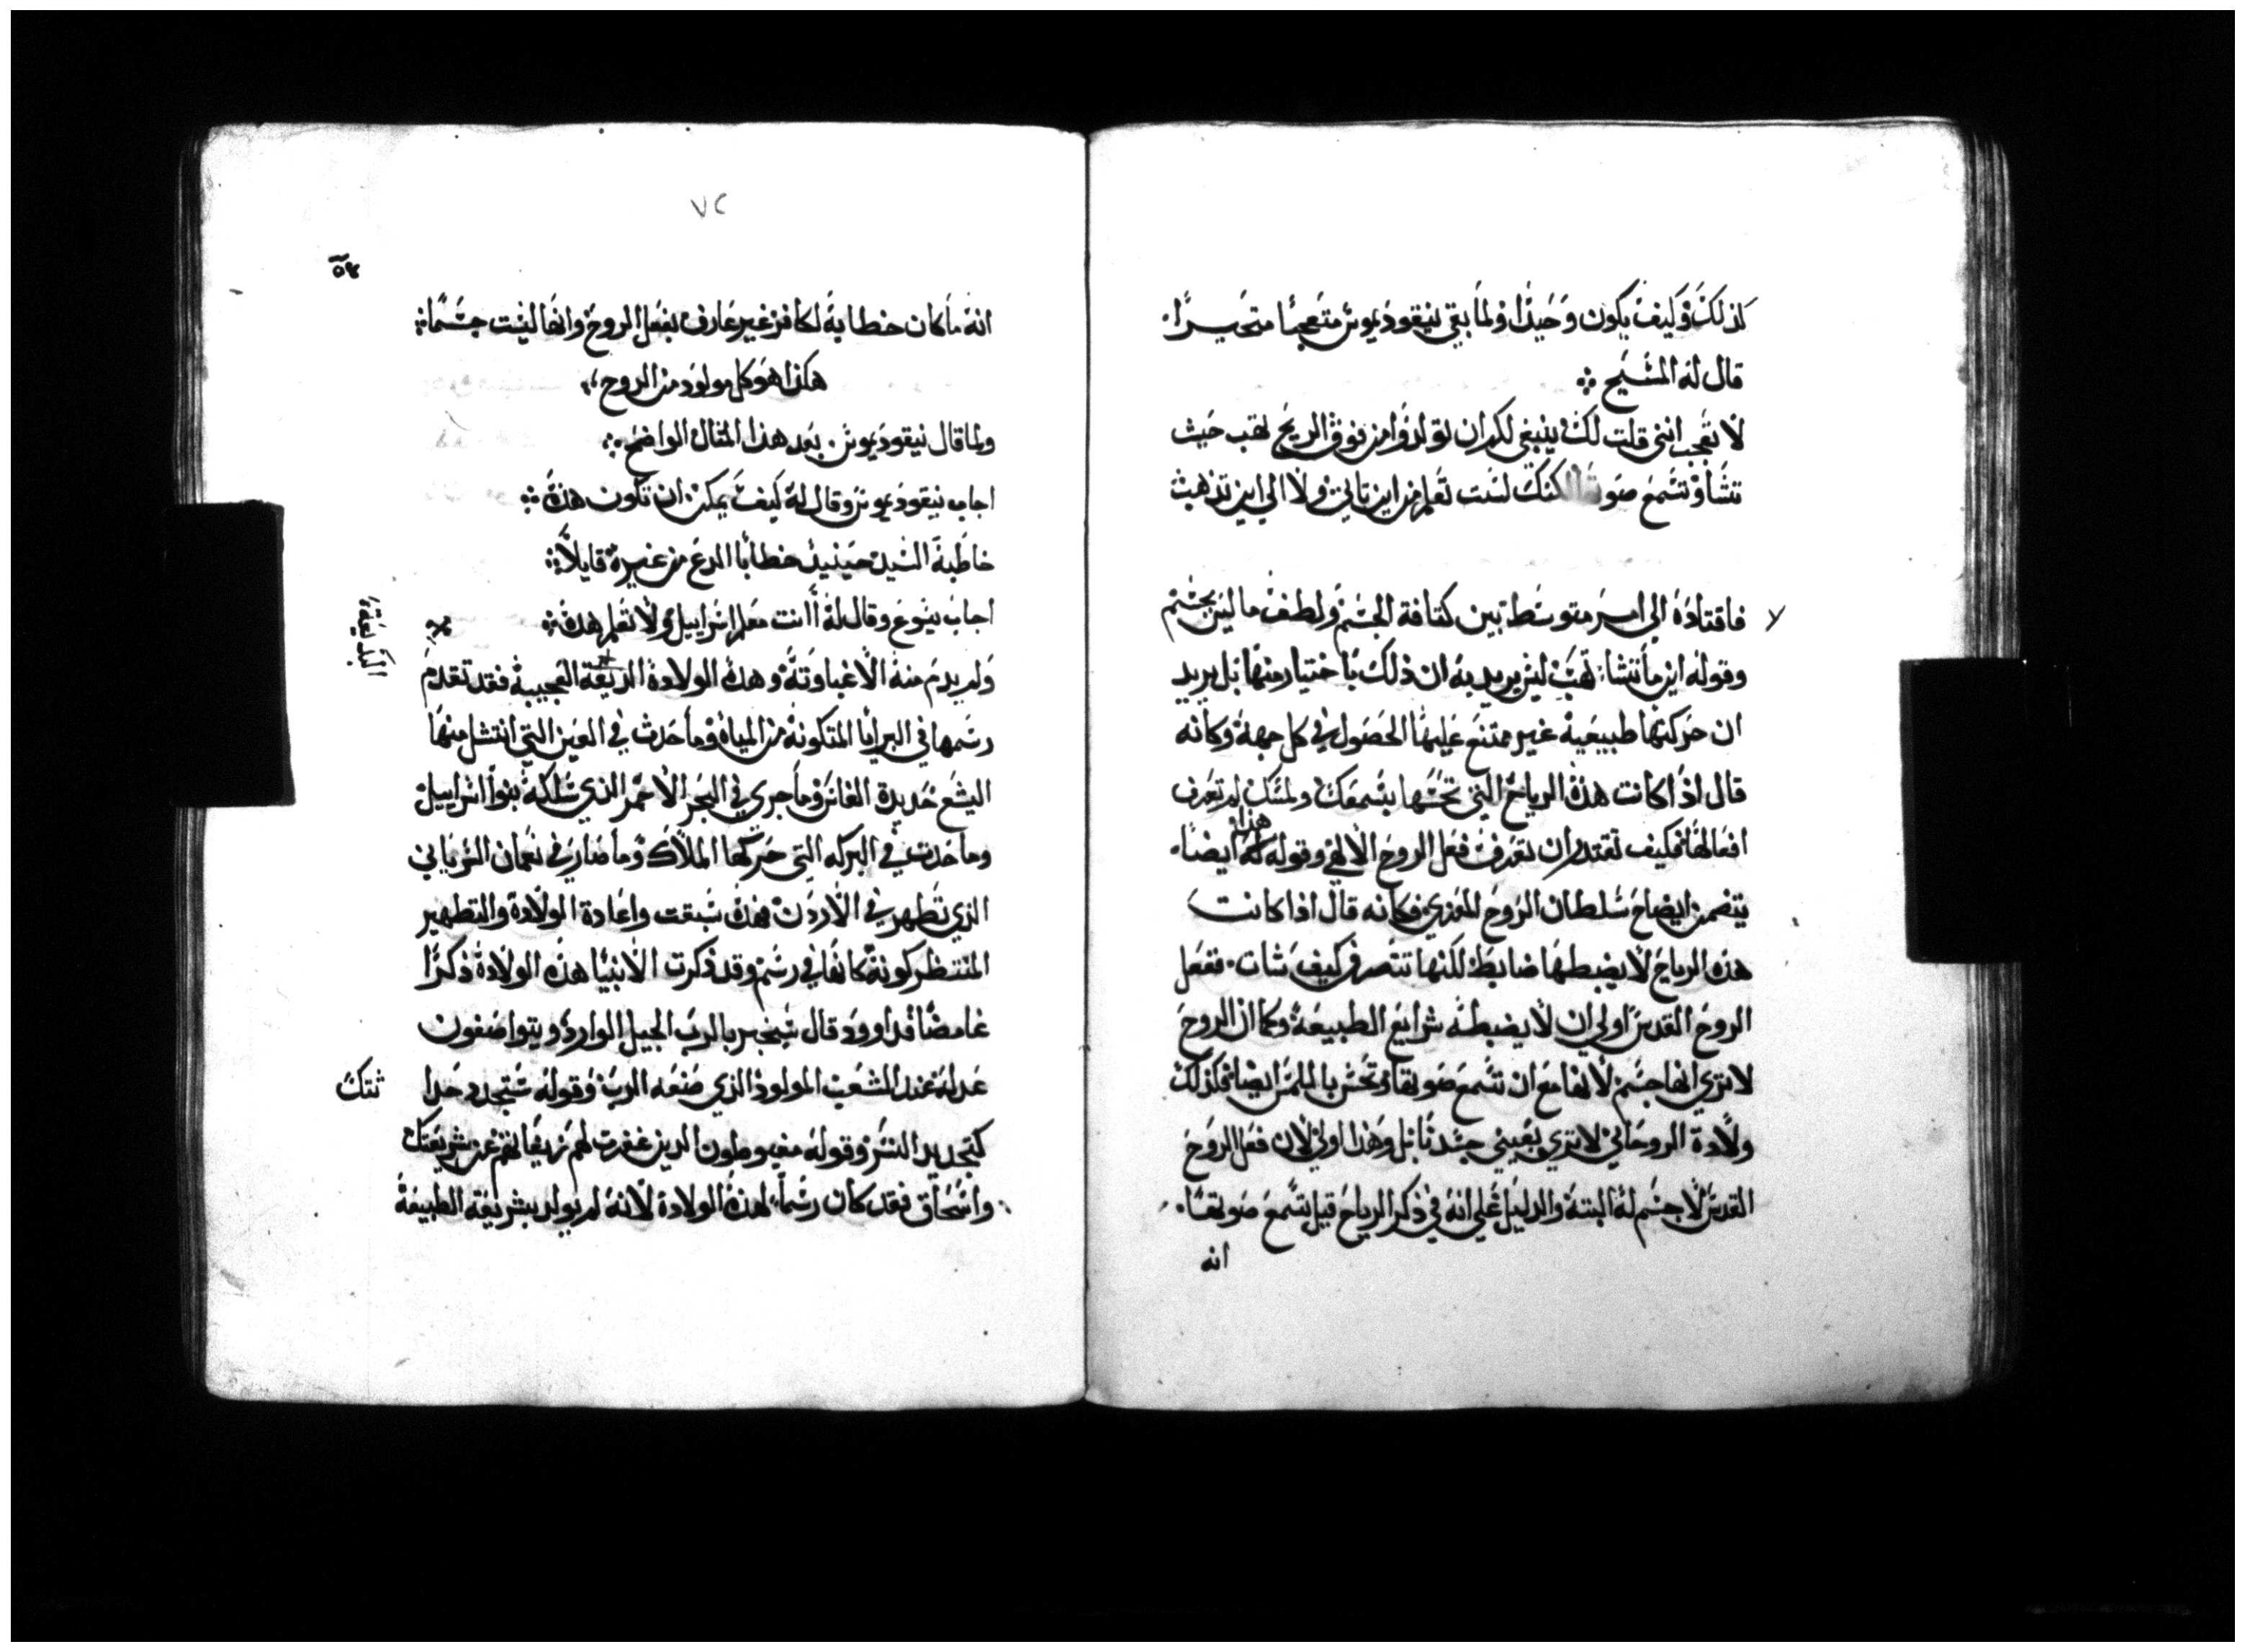 كذلك وكيف يكون وحيدا ولما بقي نيقوديموس متعجبا متحيرا.
قال له المسيح
لا تعجب انني قلت لك ينبغي لكم ان تولدوا من فوق الريح تهب حيث
تشاو تسمع صوتها لكنك لست تعلم من اين تاتي ولا الي اين تذهب
فاقتاده الي امر متوسط بين كثافة الجسم ولطف ما ليس بجسم
وقوله اين ما تشا تهب ليس يريد به ان ذلك باختيار منها بل يريد
ان حركتها طبيعية غير ممتنع عليها الحصول في كل جهة وكانه
قال اذا كانت هذه الرياح التي تحسها بسمعك ولمسك لم تعرف
افعالها فكيف تقتدر ان تعرف فعل الروح الالهي وقوله هذا ايضا.
يتضمن ايضاح سلطان الروح المعزي فكانه قال اذا كانت
هذه الرياح لا يضبطها ضابط لكنها تتصرف كيف شات. ففعل
الروح القدس اولي ان لا يضبطه شرايع الطبيعة وكما ان الروح
لا تري انها جسم لانها مع ان تسمع صوتها وتحس بالملمس ايضا فكذلك
ولادة الروحاني لا تري بعيني جسدنا بل وهذا اولي لان فعل الروح
القدس لا جسم له البتة والدليل علي انه في ذكر الرياح قيل تسمع صوتها.
انه
٧٢
انه ما كان خطابة لكافر غير عارف بفعل الروح وانها ليست جسما
هكذا هو كل مولود من الروح
ولما قال نيقوديموس. بعد هذا المثال الواضح
اجاب نيقوديموس وقال له كيف يمكن ان تكون هذه
خاطبه السيد حينيذ خطابا الدع من غيره قايلا
اجاب يسوع وقال له أانت معلم اسراييل ولا تعلم هذه
ولم يدم منه الا غباوته وهذه الولادة البديعة العجيبة فقد تقدم
رسمها في البرايا المتكونة من المياه وما حدث في العين التي انتشل منها
اليشع حديدة الفاس وما جري في البحر الاحمر الذي سلكه بنوا اسراييل
وما حدث في البركه التي حركها الملاك وما صار في نعمان السرياني
الذي تطهر في الاردن فهذه سبقت واعادة الولادة والتطهير
المنتظر كونه كانها في رسم وقد ذكرت الانبيا هذه الولادة ذكرا
غامضا فداوود قال سيخبر بالرب الجيل الوارد ويتواصفون
عدله عند الشعب المولود الذي صنعه الرب وقوله ستجدد حدا
ثتك
كتجديد النسر وقوله مغبوطون الذين غفرت لهم زيفانهم عن شريعتك
واسحاق فقد كان رسما لهذه الولادة لانه لم يولد بشريعة الطبيعة